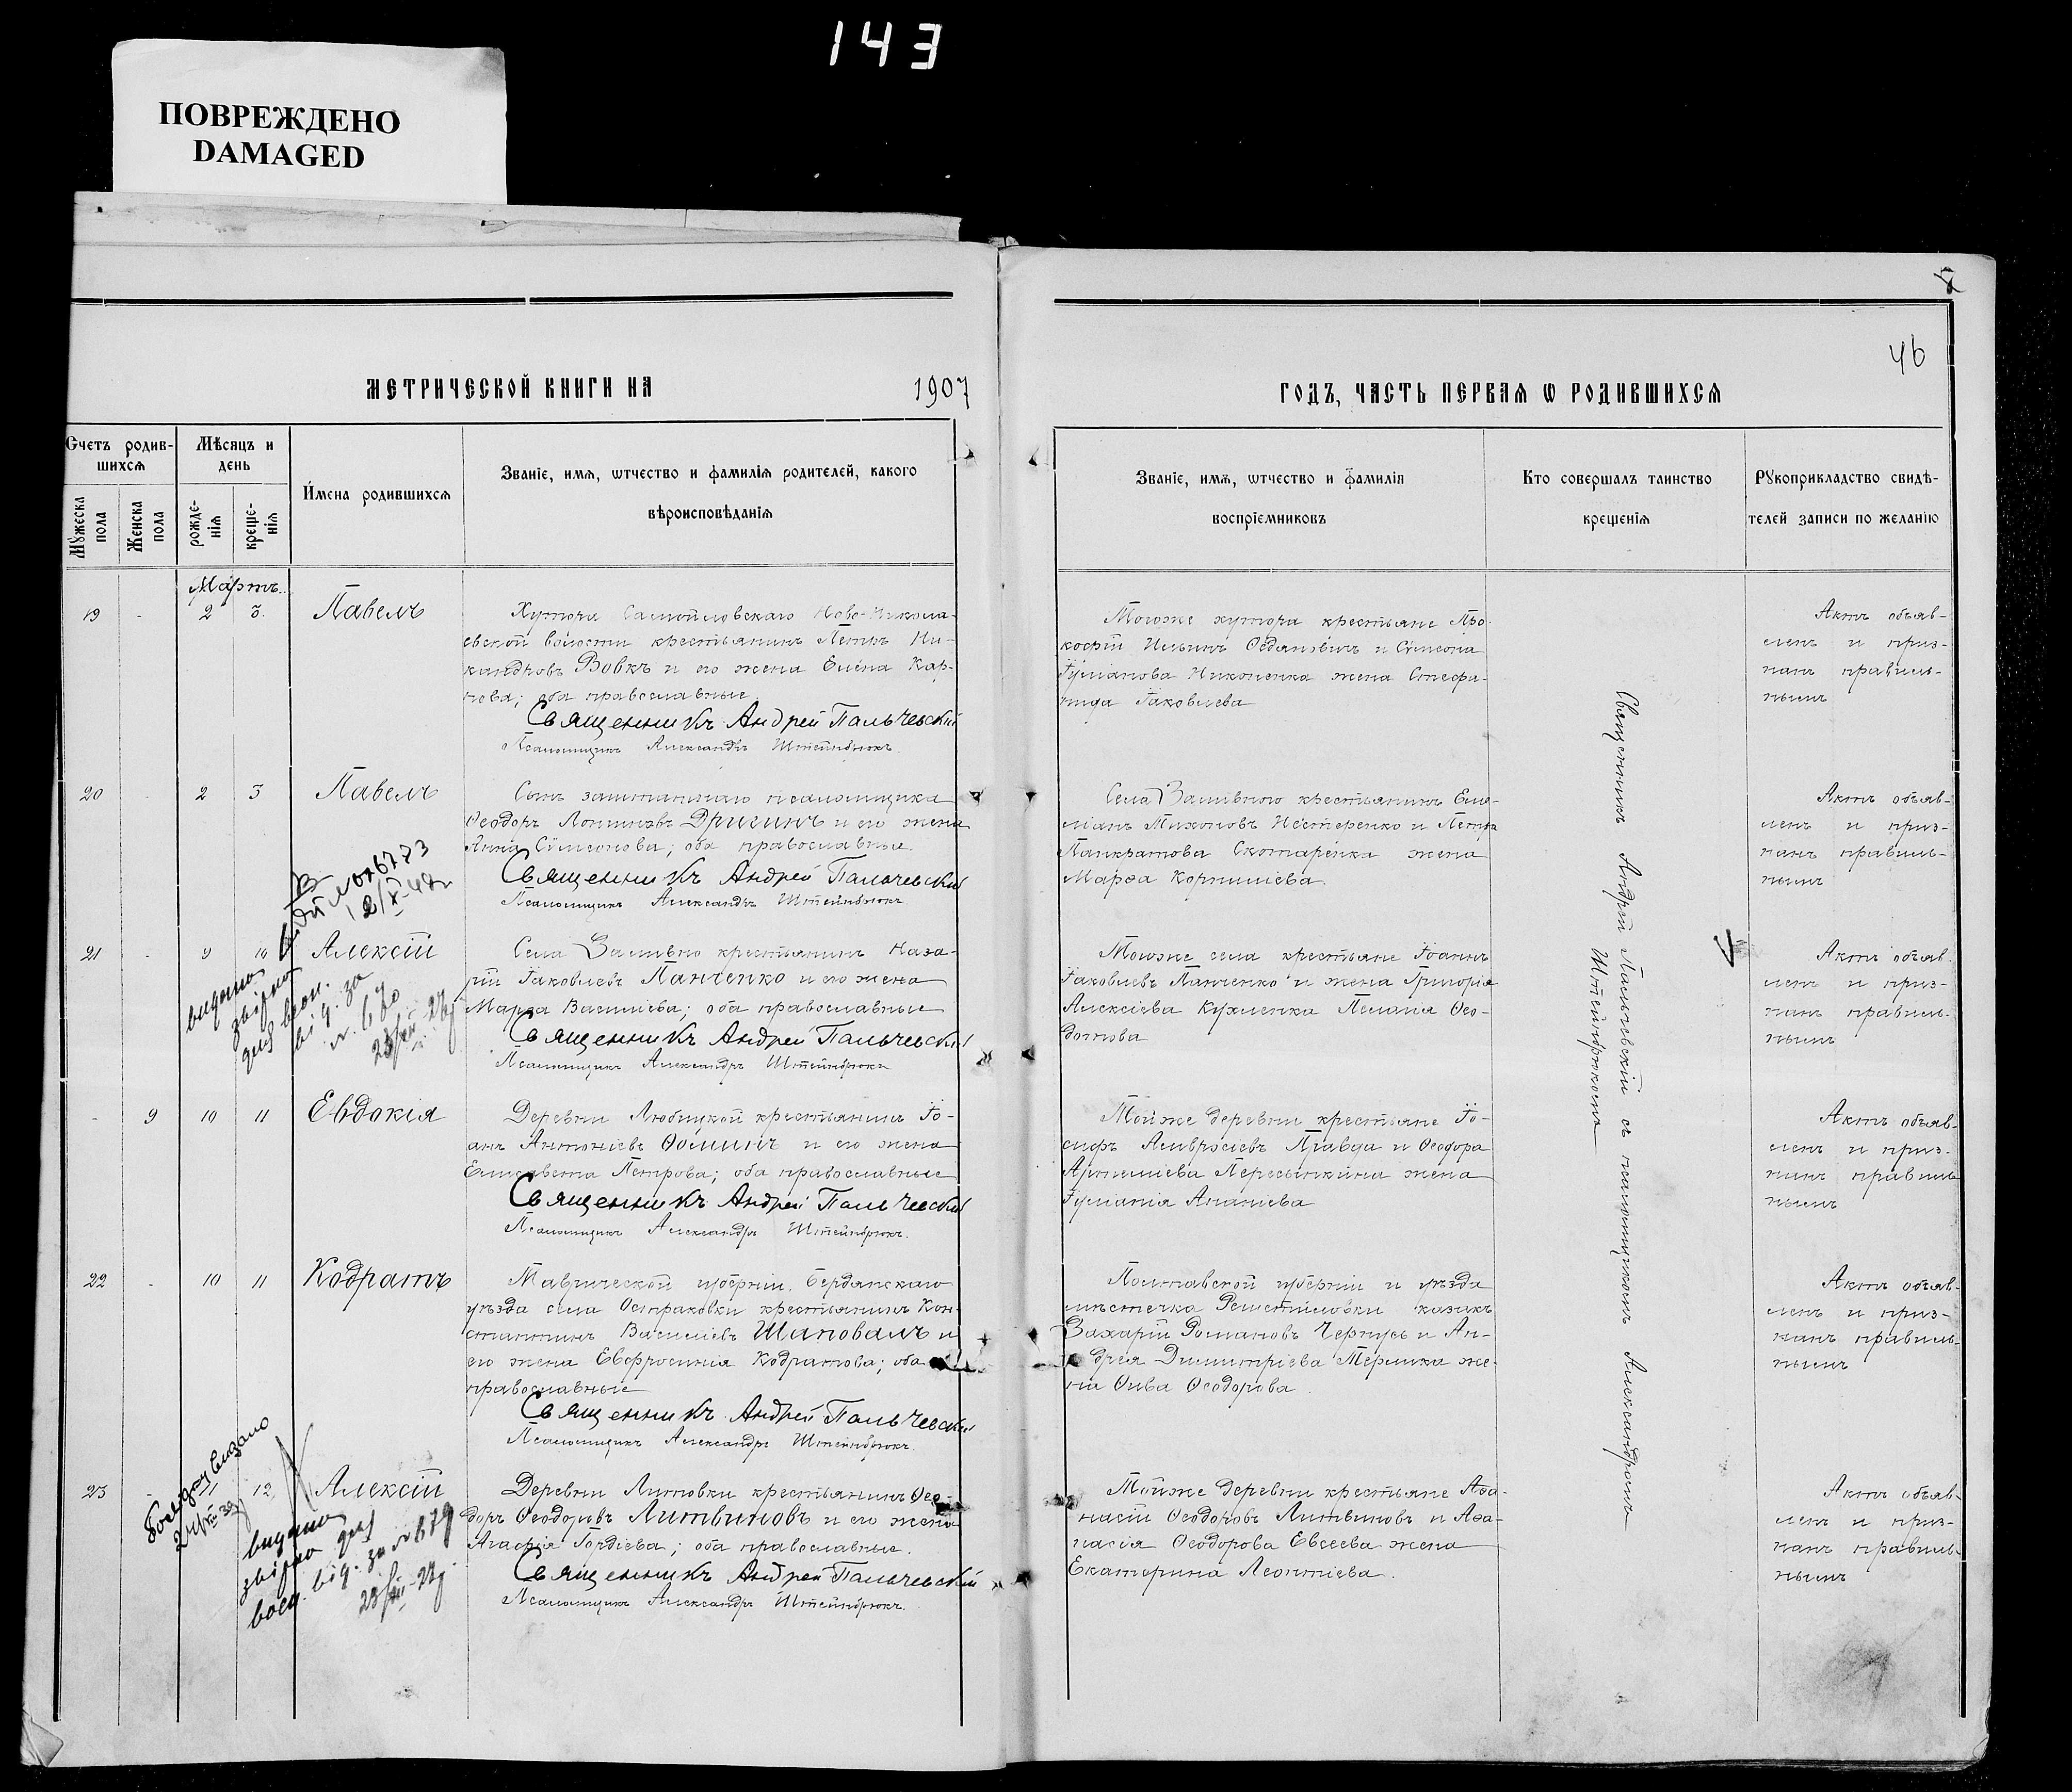 143
ПОВРЕЖДЕНО
DAMAGED
46
МЕТРИЧЕСКОЙ КНИГИ НА 1907
ГОДЪ, ЧАСТЬ ПЕРВАЯ Ѡ РОДИВШИХСЯ
Счетъ родив-
шихся
Мѣсяцъ и
день
Мужеска
пола
Женска
пола
рожде-
нія
креще-
нія
Имена родившихся
Званіе, имя, ѡтчество и фамилія родителей, какого
вѣроисповѣданія
Званіе, имя, ѡтчество и фамилія
воспріемниковъ
Кто совершалъ таинство
крещенія
Рукоприкладство свидѣ-
телей записи по желанію
Мартъ
19 - 2 3. Павелъ
Хутора Самойловскаго Ново-Никола-
евской волости крестьянинъ Петръ Ни-
кандровъ Вовкъ и его жена Елена Кар-
пова; оба православные
Священникъ Андрей Пальчевскій
Псаломщикъ Александръ Штейнбрюкъ
Тогоже хутора крестьяне Про-
кофій Ильинъ и Симеона
Іуліанова Никоненка жена Стефа-
нида Іаковлева
Актъ объяв-
ленъ и приз-
нанъ правиль-
нымъ
20 - 2 3 Павелъ
Сынъ заштатнаго псаломщика
Ѳеодоръ Логиновъ Дригинъ и его жена
Анна Симеонова; оба православные.
Священникъ Андрей Пальчевскій
Псаломщикъ Александръ Штейнбрюкъ
Села Заливного крестьянинъ Еме-
ліанъ Тихоновъ Нестеренко и Петра
Панкратова Скотаренка жена
Марѳа Корниліева.
Актъ объяв-
ленъ и приз-
нанъ правиль-
нымъ
21 - 9 10 Алексій
Села Заливно крестьянинъ Наза-
рій Іаковлевъ Панченко и его жена
Марѳа Васильева; оба православные
Священникъ Андрей Пальчевскій
Псаломщикъ Александръ Штейнбрюкъ
видано
за
Тогоже села крестьяне Іоаннъ
Іаковлевъ Панченко и жена Григорія
Алексіева Кухленка Пелагія Ѳео-
дотова
Актъ объяв-
ленъ и приз-
нанъ правиль-
нымъ
- 9 10 11 Евдокія
Деревни Любицкой крестьянинъ Іо-
анъ Антоніевъ Ѳоминъ и его жена
Елисавета Петрова; оба православные
Священникъ Андрей Пальчевскій
Псаломщикъ Александръ Штейнбрюкъ.
Тойже деревни крестьяне Іо-
сифъ Амвросіевъ Правда и Ѳеодора
Артеміева Пересыпкина жена
Іуліанія Ананіева
Актъ объяв-
ленъ и приз-
нанъ правиль-
нымъ
22 - 10 11 Кодратъ
Таврической губерніи, Бердянскаго
уѣзда села Остраковки крестьянинъ Кон-
стантинъ Васильевъ Шаповалъ и
его жена Евфросинія Кодратова; оба
православные
Священникъ Андрей Пальчевскій
Псаломщикъ Александръ Штейнбрюкъ.
Полтавской губерніи и уѣзда
мѣстечка Решетиловки казакъ
Захарій Романовъ Чернусь и Ан-
дрея Димитріева Терника же-
на Ѳива Ѳеодорова.
Актъ объяв-
ленъ и приз-
нанъ правиль-
нымъ
23 - 11 12 Алексій
Деревни Литовки крестьянинъ Ѳео-
доръ Ѳеодоровъ Литвиновъ и его жена
Агафія Гордіева; оба православные.
Священникъ Андрей Пальчевскій
Псаломщикъ Александръ Штейнбрюкъ.
видано
за № 679
Тойже деревни крестьяне Аѳа-
насій Ѳеодоровъ Литвиновъ и Аѳа-
насія Ѳеодорова Евсеева жена
Екатерина Леонтіева.
Актъ объяв-
ленъ и приз-
нанъ правиль-
нымъ
Священникъ Андрей Пальчевскій съ псаломщикомъ Александромъ
Штейнбрюкомъ